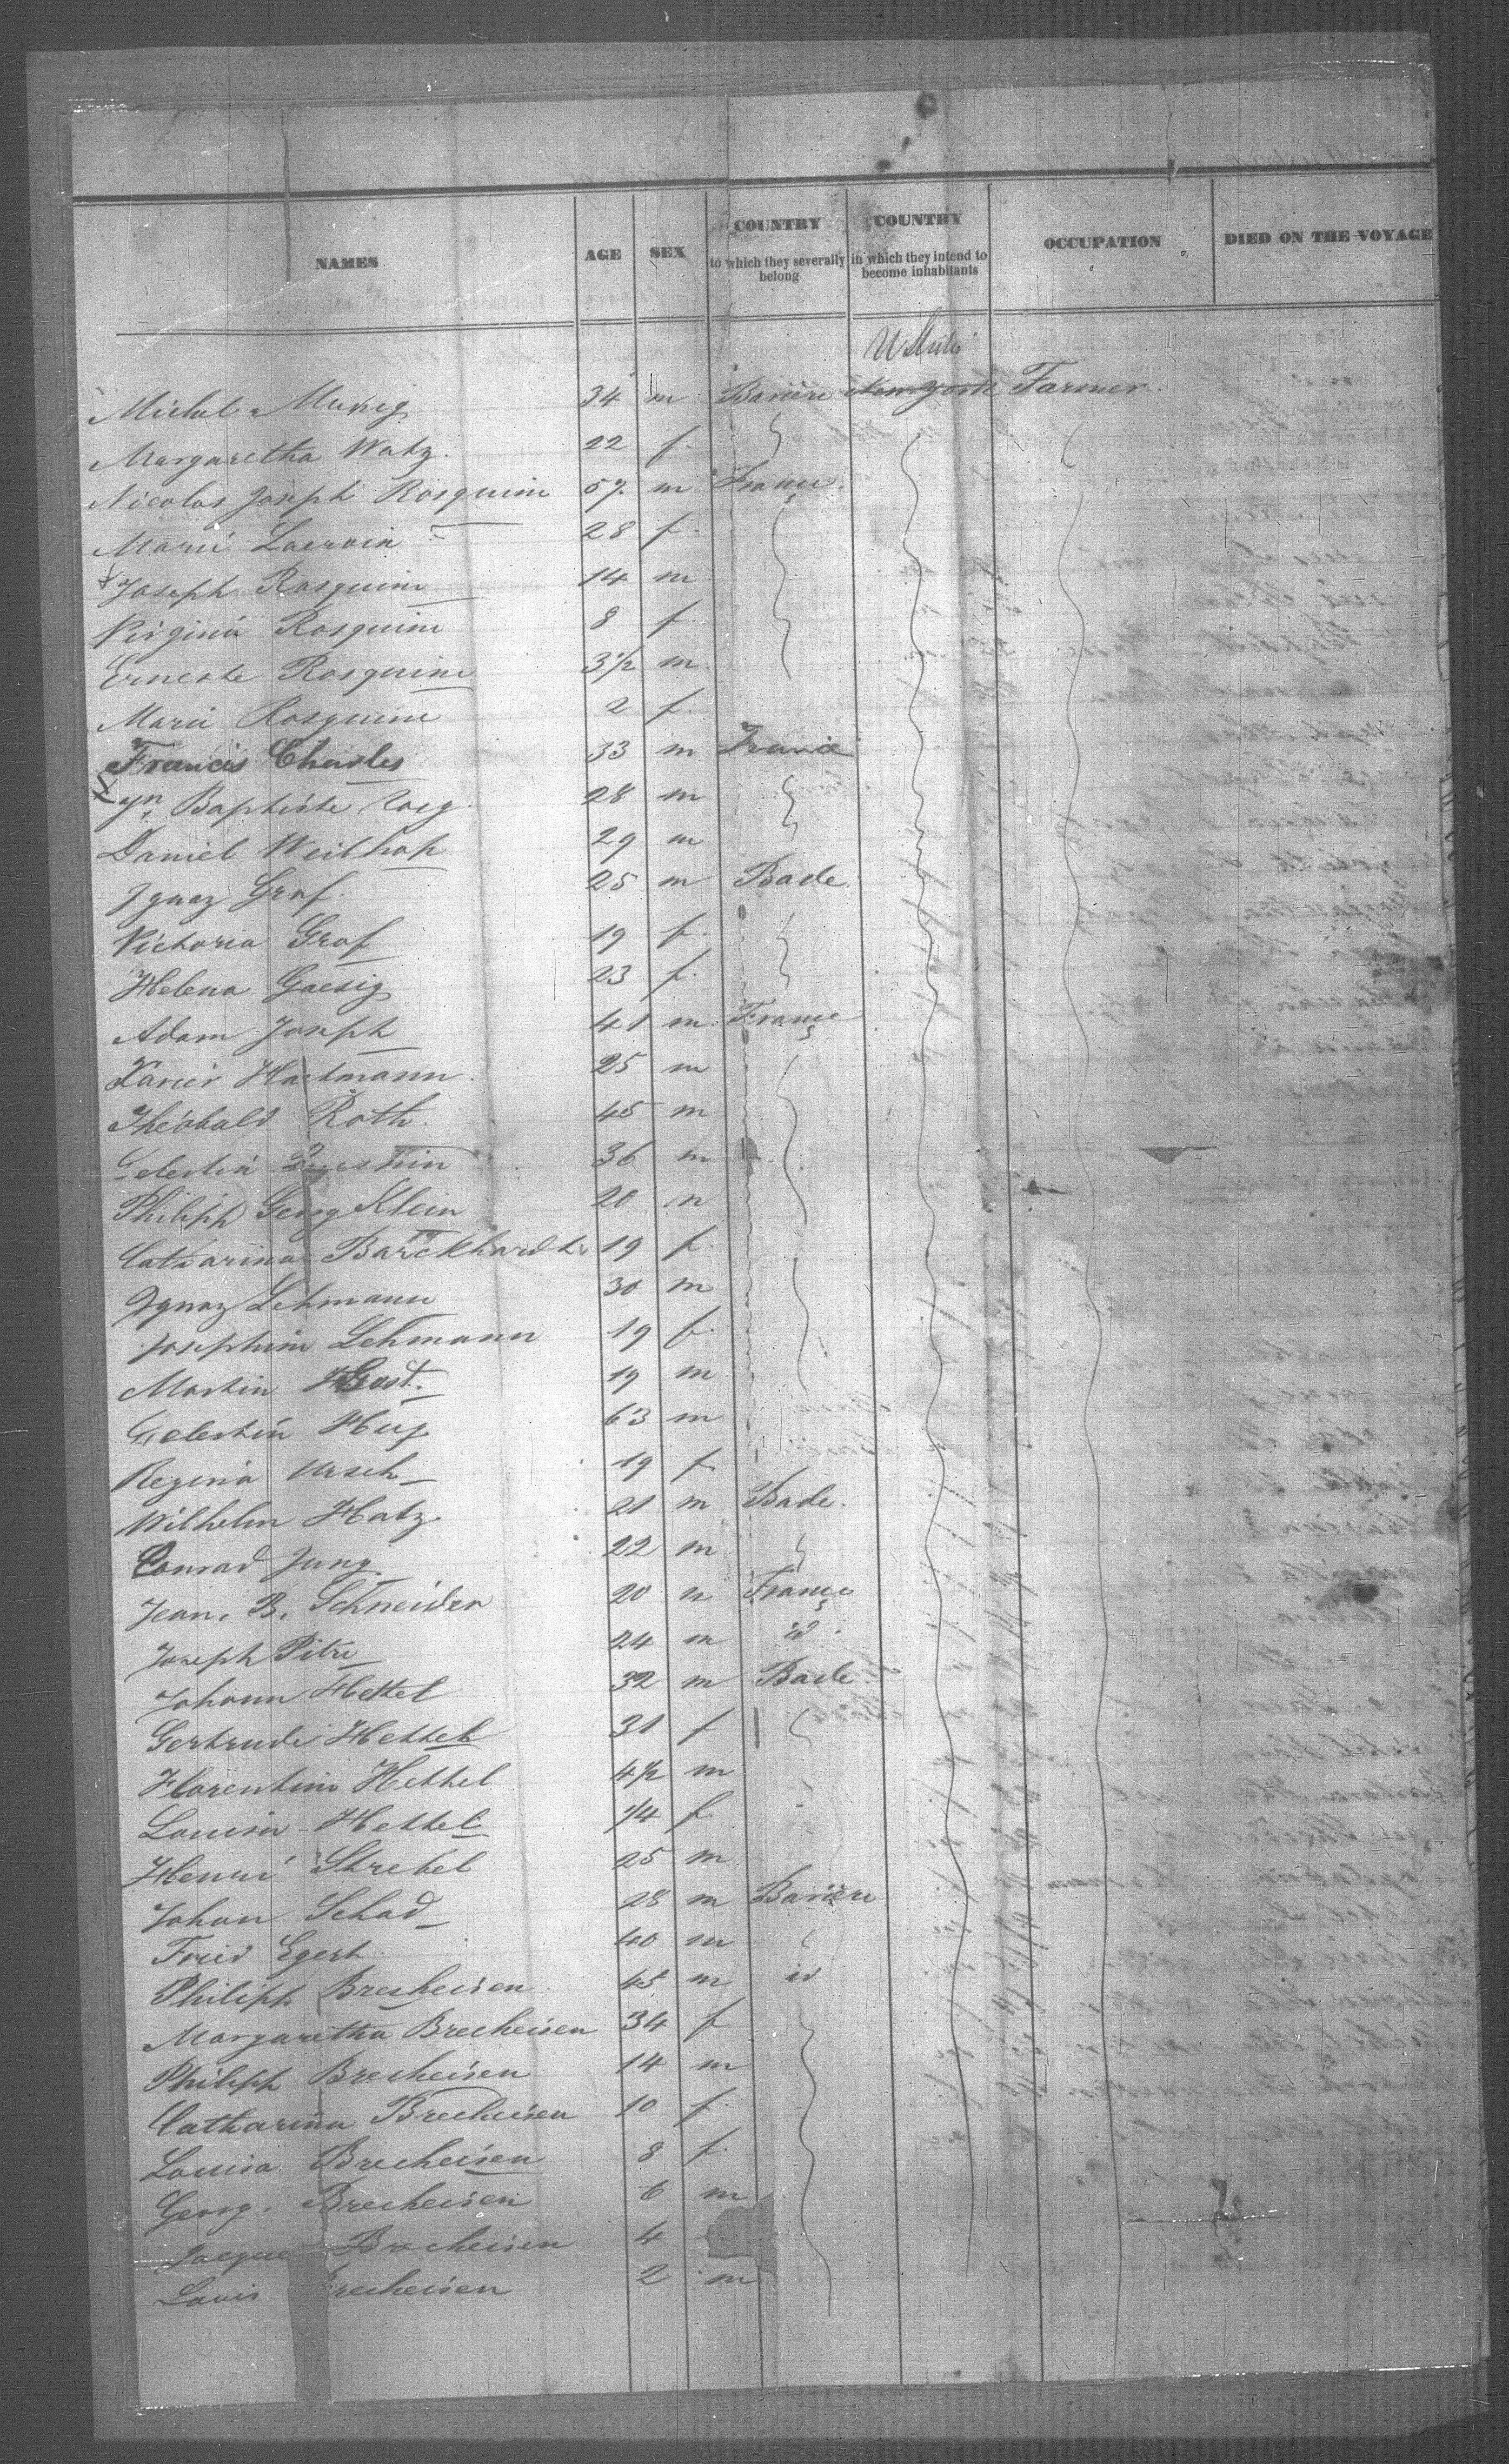 NAMES AGE SEX COUNTRY to which they severally belong COUNTRY in which they intend to become inhabitants OCCUPATION DIED ON THE VOYAGE
U States
34 m Bavière New York Farmer
Margaretha Watz. 22 f.
Nicolas Joseph Rosquin 57 m France.
Marie Lacroix 28 f.
Joseph Rosquin 14 m
Virginie Rosquin 8 f
Erneste Rosquin 3 1/2 m
Marie Rosquin 2 f.
Francis Charles 33 m France
Jn. Baptiste 28 m
Daniel Weilhop 29 m
Ignaz Graf. 25 m Bade.
Victoria Graf 19 f.
Helena Gaesig 23 f.
Adam Joseph 41 m. France
Xavier Hartmann. 25 m
Théobald Roth. 45 m
Celestin 36 m
Philiph Georg Klein 20 m
Catharina Barckhardt 19 f.
Ignaz Lehmann 30 m
Josephine Lehmann 19 f.
Martin 19 m
Celestin Hug 63 m
Regina Ursch 19 f.
Wilhelm Hatz. 21 m Bade.
Conrad Jung 22 m
Jean. B. Schneider 20 m France
Joseph Pitre 24 m id.
Johann Hettel 32 m Bade.
Gertrude Hettel 31 f
Florentin Hettel 4 1/2 m
Louisa Hettel 1/4 f.
Henri Strebel 25 m
Johan Schad 28 m Bavière
Fried Egert. 40 m
Philiph Brecheisen. 45 m id
Margaretha Brecheisen 34 f
Philiph Brecheisen 14 m
Catharina Brecheisen 10 f.
Louisa Brecheisen 8 f.
Georg. Brecheisen 6 m
Jacque Brecheisen 4
Louis recheisen 2 m